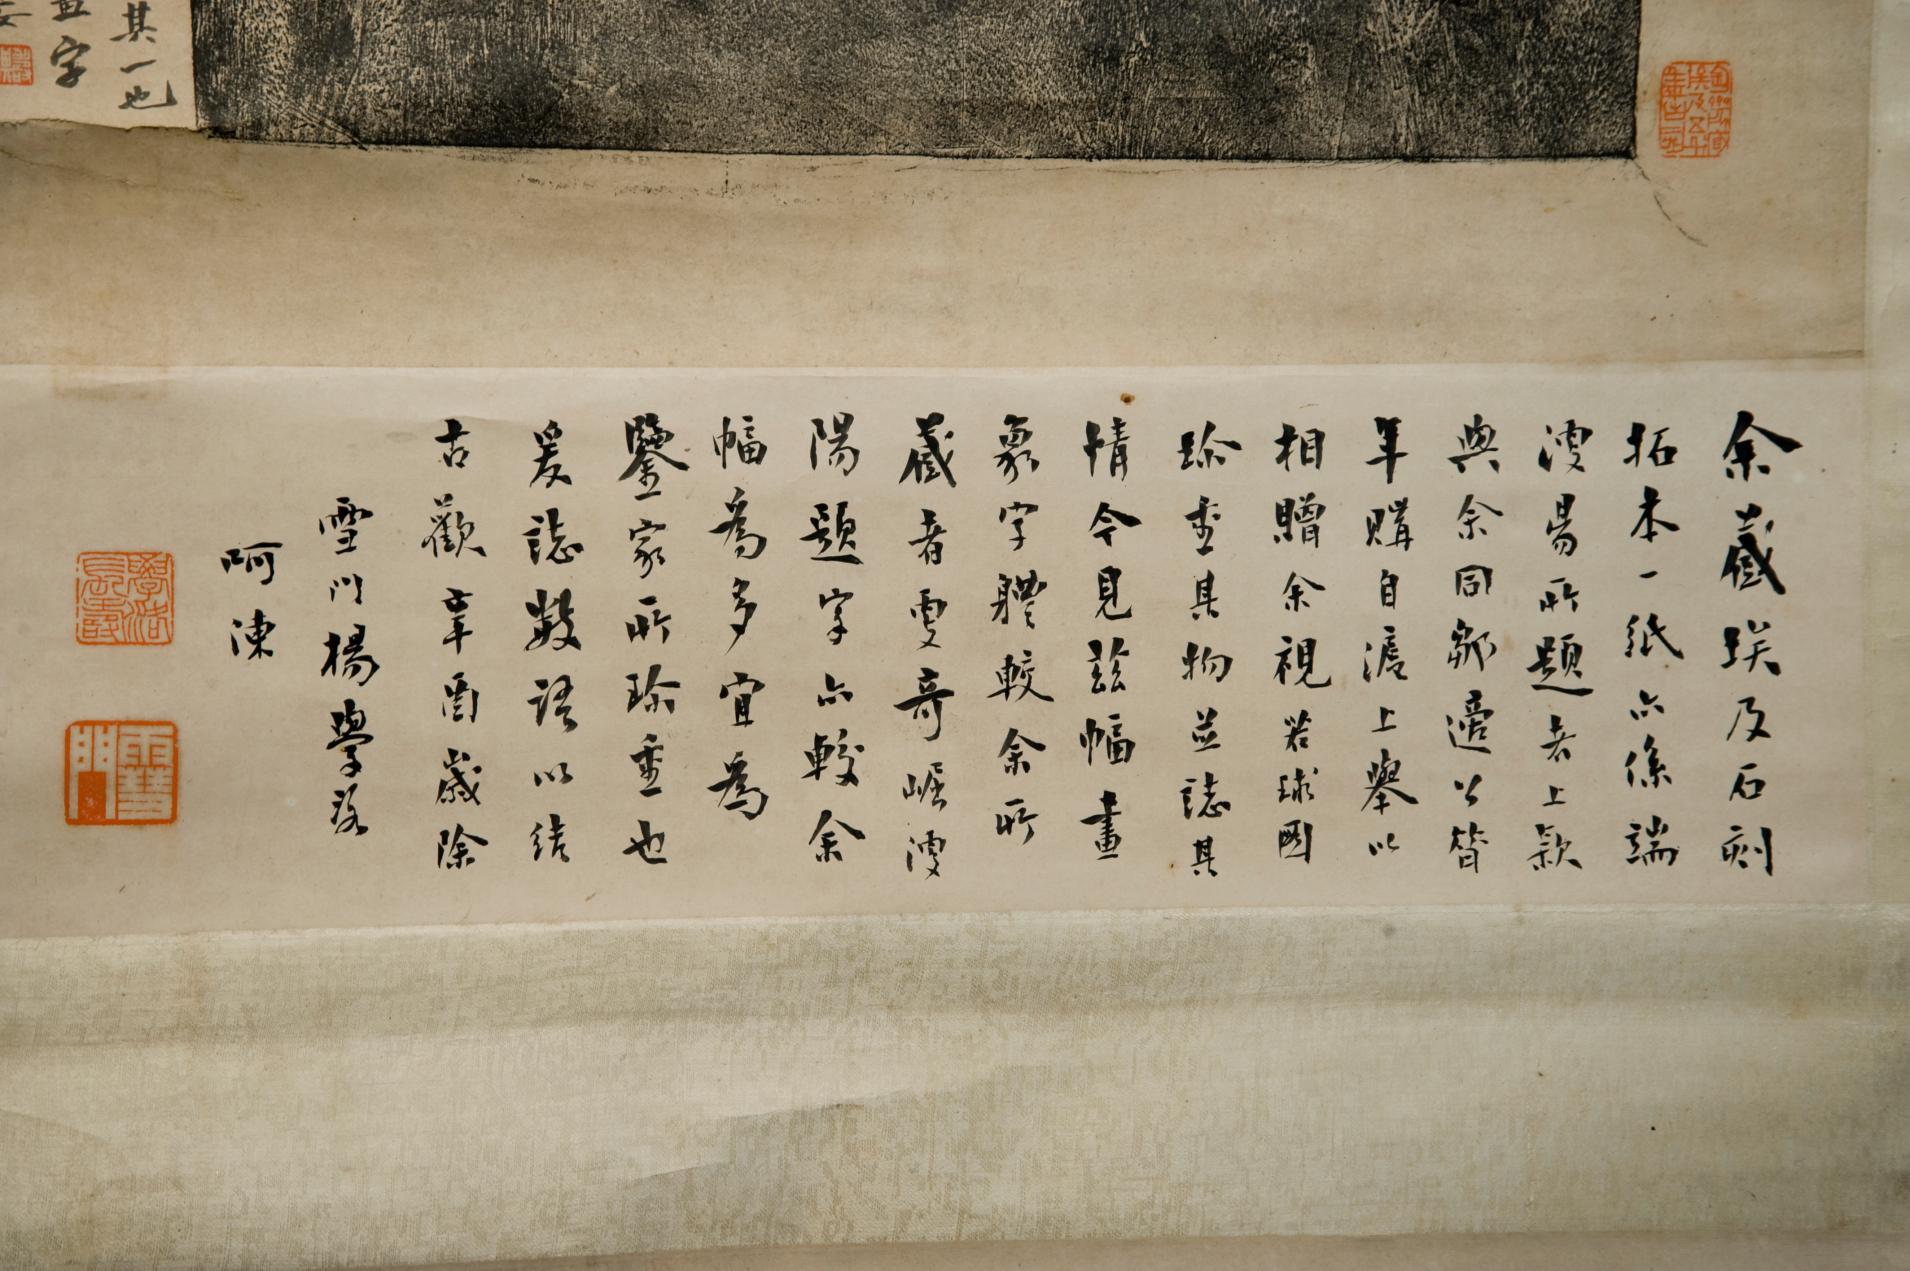 余藏埃及石刻
拓本一紙亦係端
溲昜所題者上款
與余同鄒適公皆
年購自滬上舉以
相贈余視若球圖
珍重其物並誌其
情今見茲幅畫
象字體較余所
藏者更奇崛溲
陽題字亦較余
幅為多宜為
鑒家所珍重也
爰誌數語以結
古歡辛酉歲除
雪門楊學洛
呵凍
學洛長壽
雪門
其一也
字